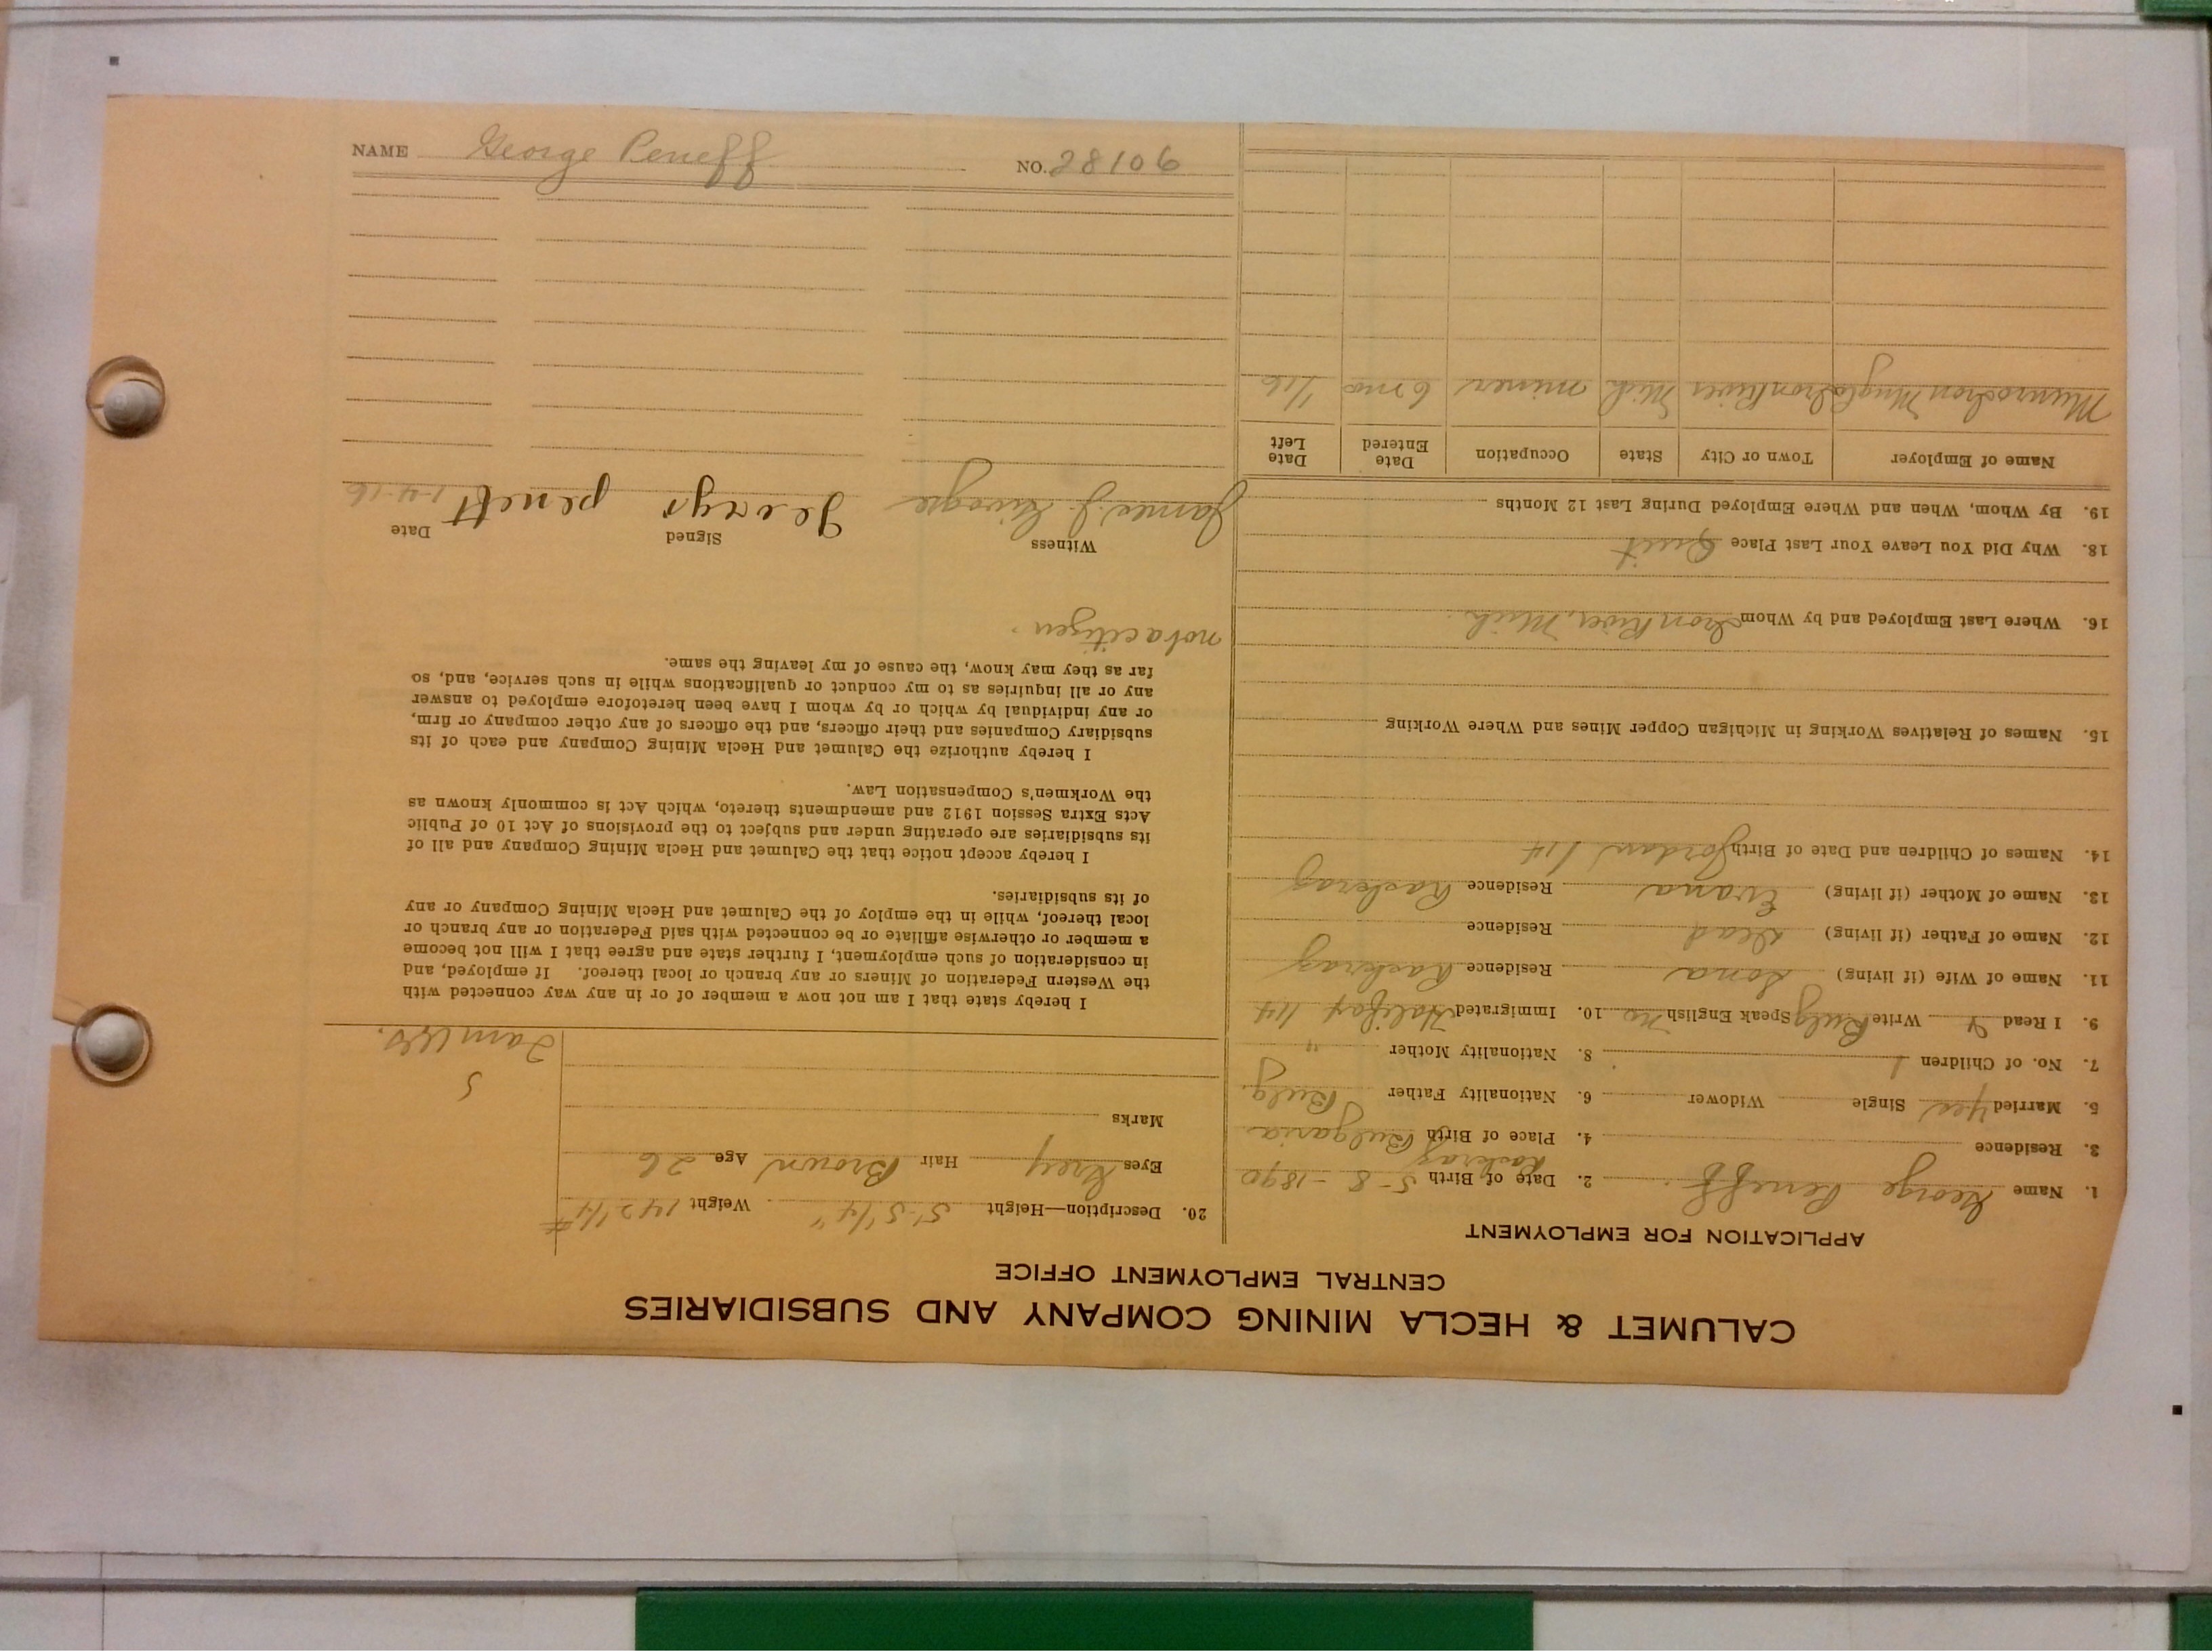 CALUMET & HECLA MINING COMPANY AND SUBSIDIARIES
CENTRAL EMPLOYMENT OFFICE
APPLICATION FOR EMPLOYMENT
1. Name George Peneff 2. Date of Birth 5-8-1890
3. Residence 4. Place of Birth Bulgaria
5. Married yes Single Widower 6. Nationality Father Bulg
7. No. of Children 1 8. Nationality Mother "
9. I Read Y Write Bulg Speak English no 10. Immigrated Halifax 1/14
11. Name of Wife (if living) Residence
12. Name of Father (if living) Dead Residence
13. Name of Mother (if living) Evana Residence
14. Names of Children and Date of Birth Jordan 1/14
15. Names of Relatives Working in Michigan Copper Mines and Where Working
16. Where Last Employed and by Whom Iron River, Mich.
18. Why Did You Leave Your Last Place Quit
19. By Whom, When and Where Employed During Last 12 Months
Name of Employer Town or City State Occupation Date Entered Date Left
Munro Iron Iron River Mich miner 6 mo 1/16
20. Description—Height 5'-5 1/4" Weight 142 1/4 #
Eyes Grey Hair Brown Age 26
Marks
I hereby state that I am not now a member of or in any way connected with
the Western Federation of Miners or any branch or local thereof. If employed, and
in consideration of such employment, I further state and agree that I will not become
a member or otherwise affiliate or be connected with said Federation or any branch or
local thereof, while in the employ of the Calumet and Hecla Mining Company or any
of its subsidiaries.
I hereby accept notice that the Calumet and Hecla Mining Company and all of
its subsidiaries are operating under and subject to the provisions of Act 10 of Public
Acts Extra Session 1912 and amendments thereto, which Act is commonly known as
the Workmen's Compensation Law.
I hereby authorize the Calumet and Hecla Mining Company and each of its
subsidiary Companies and their officers, and the officers of any other company or firm,
or any individual by which or by whom I have been heretofore employed to answer
any or all inquiries as to my conduct or qualifications while in such service, and, so
far as they may know, the cause of my leaving the same.
not a citizen.
Witness Signed Date
James J. George peneff 1-4-16
NAME George Peneff NO. 28106